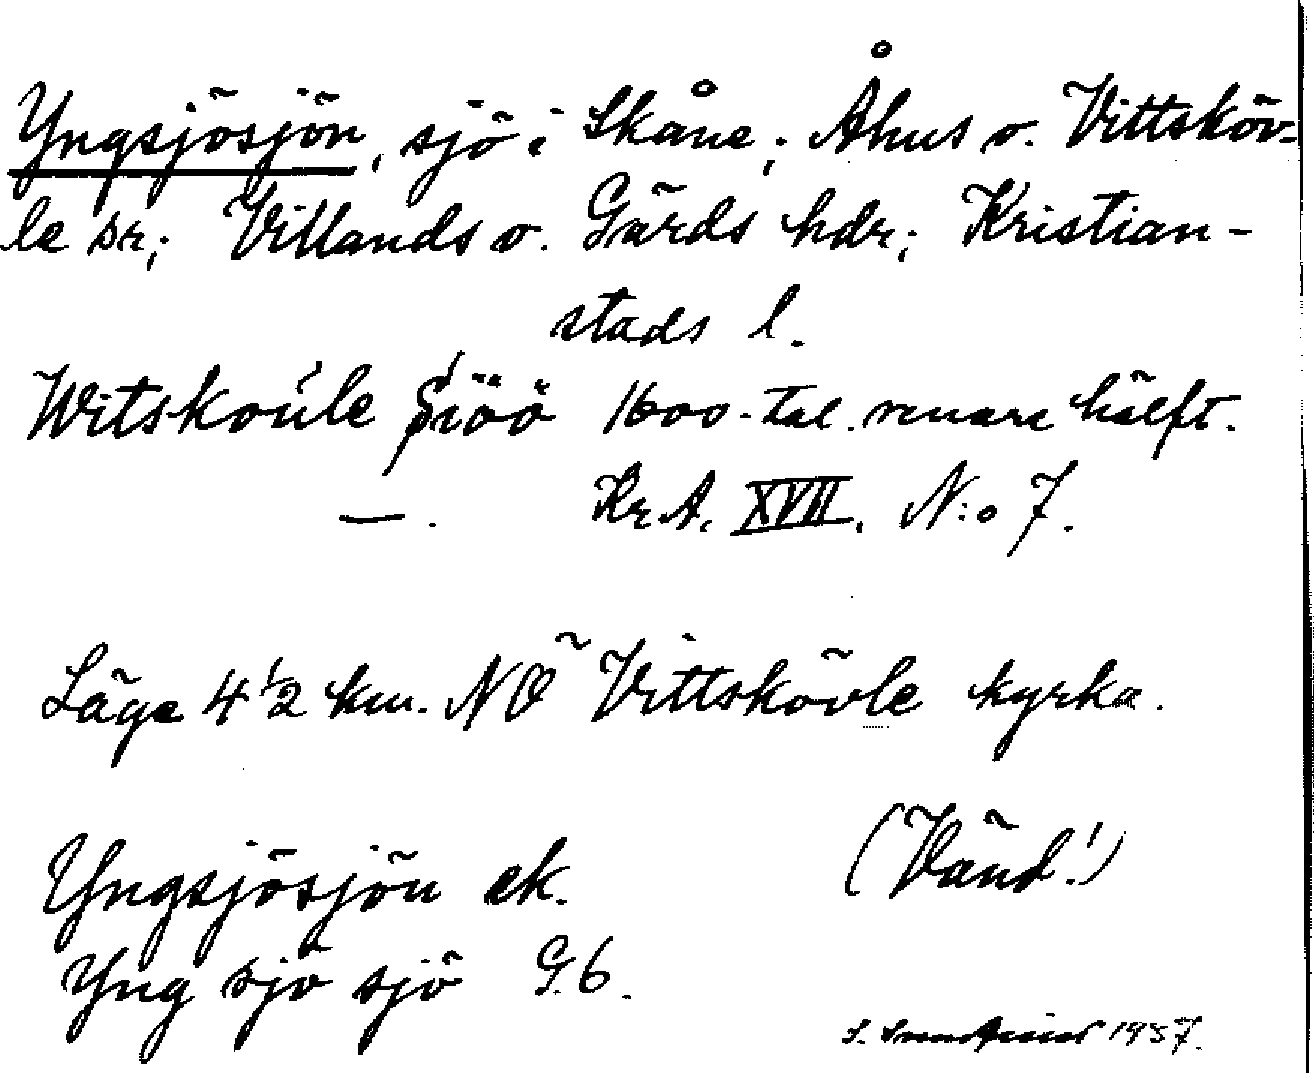 Yngsjösjön, sjö i Skåne; Åhus o. Vittsköv-
le sr; Villands o. Gärds hdr; Kristian-
stads l.
Witskoule Siöö 1600-tal. senare hälft.
—. Kr.A. XVII. N:o 7.
Läge 4 1/2 km. NÖ Vittskövle kyrka.
Yngsjösjön ek. (Vänd!)
Yng sjö sjö G6.
1957.